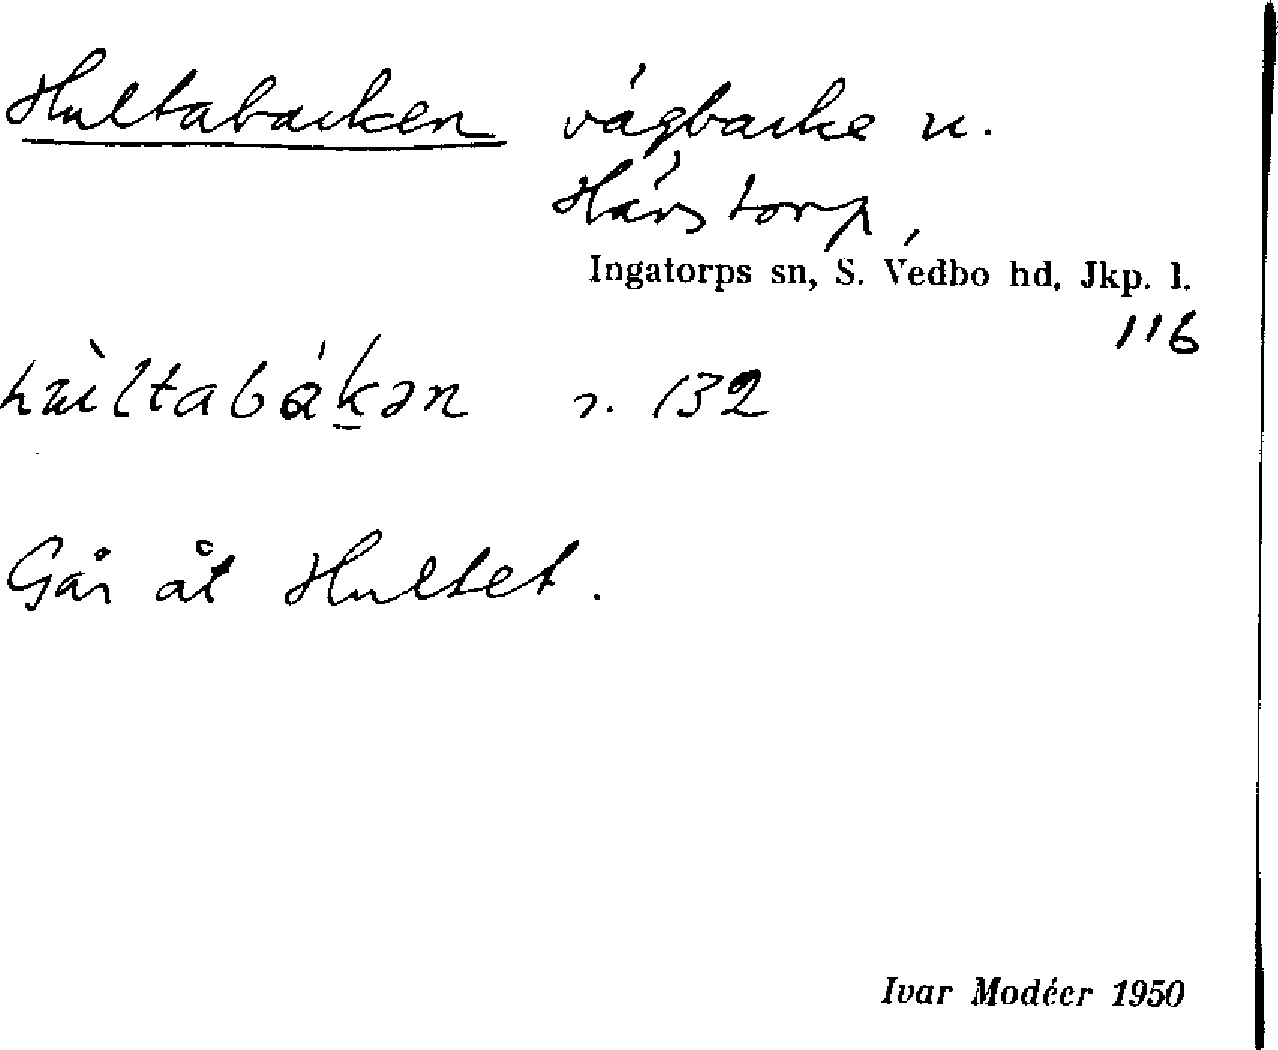 Hultabacken vägbacke u.
Härstorp,
Ingatorps sn, S. Vedbo hd, Jkp. l.
116
r. 132
Går åt Hultet.
Ivar Modéer 1950